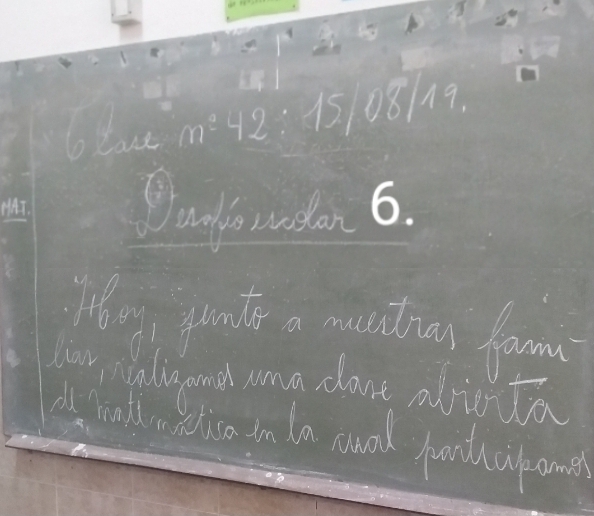 Clase nº 42: 15/08/19.
MAT.
Desafío escolar 6.
Hoy, junto a nuestras fami-
lias, realizamos una clase abierta
de matemática en la cual participamos